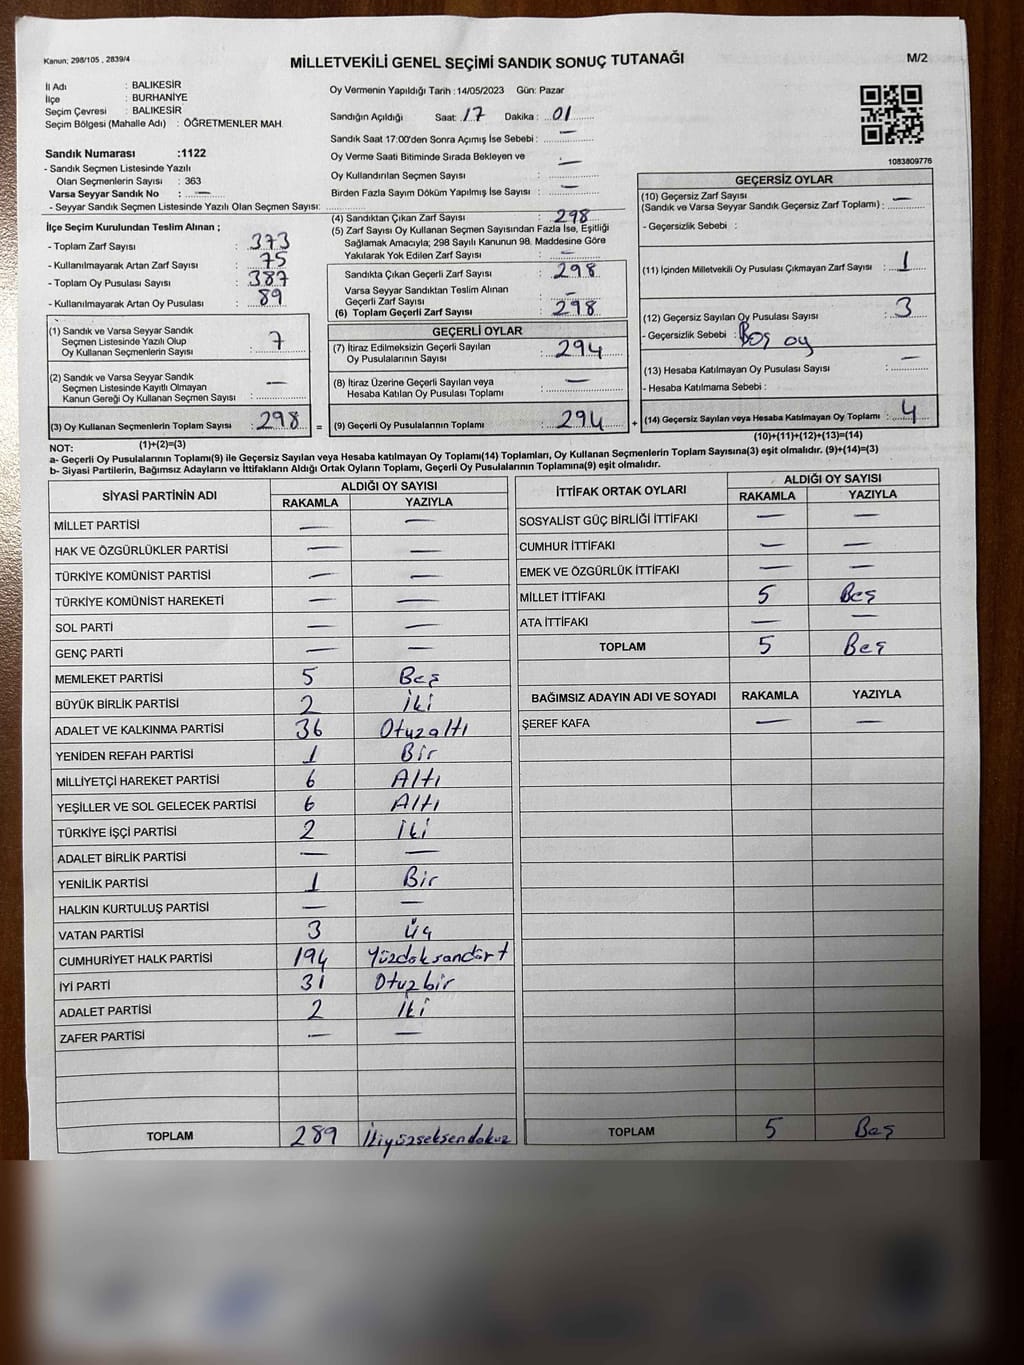 Kanun; 298/105 , 2839/4
MİLLETVEKİLİ GENEL SEÇİMİ SANDIK SONUÇ TUTANAĞI
M/2
İl Adı : BALIKESİR
İlçe : BURHANİYE
Seçim Çevresi : BALIKESİR
Seçim Bölgesi (Mahalle Adı) : ÖĞRETMENLER MAH.
Sandık Numarası :1122
- Sandık Seçmen Listesinde Yazılı
Olan Seçmenlerin Sayısı : 363
Varsa Seyyar Sandık No : —
- Seyyar Sandık Seçmen Listesinde Yazılı Olan Seçmen Sayısı:
Oy Vermenin Yapıldığı Tarih :14/05/2023 Gün: Pazar
Sandığın Açıldığı Saat: 17 Dakika : 01
Sandık Saat 17:00'den Sonra Açımış İse Sebebi : —
Oy Verme Saati Bitiminde Sırada Bekleyen ve
Oy Kullandırılan Seçmen Sayısı : —
Birden Fazla Sayım Döküm Yapılmış İse Sayısı : —
1083809776
İlçe Seçim Kurulundan Teslim Alınan ;
- Toplam Zarf Sayısı : 373
- Kullanılmayarak Artan Zarf Sayısı : 75
- Toplam Oy Pusulası Sayısı : 387
- Kullanılmayarak Artan Oy Pusulası : 89
(1) Sandık ve Varsa Seyyar Sandık
Seçmen Listesinde Yazılı Olup
Oy Kullanan Seçmenlerin Sayısı : 7
(2) Sandık ve Varsa Seyyar Sandık
Seçmen Listesinde Kayıtlı Olmayan
Kanun Gereği Oy Kullanan Seçmen Sayısı : —
(3) Oy Kullanan Seçmenlerin Toplam Sayısı : 298
(1)+(2)=(3)
(4) Sandıktan Çıkan Zarf Sayısı : 298
(5) Zarf Sayısı Oy Kullanan Seçmen Sayısından Fazla İse, Eşitliği
Sağlamak Amacıyla; 298 Sayılı Kanunun 98. Maddesine Göre
Yakılarak Yok Edilen Zarf Sayısı : —
Sandıkta Çıkan Geçerli Zarf Sayısı : 298
Varsa Seyyar Sandıktan Teslim Alınan
Geçerli Zarf Sayısı : —
(6) Toplam Geçerli Zarf Sayısı : 298
GEÇERLİ OYLAR
(7) İtiraz Edilmeksizin Geçerli Sayılan
Oy Pusulalarının Sayısı : 294
(8) İtiraz Üzerine Geçerli Sayılan veya
Hesaba Katılan Oy Pusulası Toplamı : —
= (9) Geçerli Oy Pusulalarının Toplamı : 294
GEÇERSİZ OYLAR
(10) Geçersiz Zarf Sayısı
(Sandık ve Varsa Seyyar Sandık Geçersiz Zarf Toplamı) : —
- Geçersizlik Sebebi :
(11) İçinden Milletvekili Oy Pusulası Çıkmayan Zarf Sayısı : 1
(12) Geçersiz Sayılan Oy Pusulası Sayısı : 3
- Geçersizlik Sebebi : Boş oy
(13) Hesaba Katılmayan Oy Pusulası Sayısı : —
- Hesaba Katılmama Sebebi :
+ (14) Geçersiz Sayılan veya Hesaba Katılmayan Oy Toplamı : 4
(10)+(11)+(12)+(13)=(14)
NOT:
a- Geçerli Oy Pusulalarının Toplamı(9) ile Geçersiz Sayılan veya Hesaba katılmayan Oy Toplamı(14) Toplamları, Oy Kullanan Seçmenlerin Toplam Sayısına(3) eşit olmalıdır. (9)+(14)=(3)
b- Siyasi Partilerin, Bağımsız Adayların ve İttifakların Aldığı Ortak Oyların Toplamı, Geçerli Oy Pusulalarının Toplamına(9) eşit olmalıdır.
SİYASİ PARTİNİN ADI ALDIĞI OY SAYISI
RAKAMLA YAZIYLA
MİLLET PARTİSİ — —
HAK VE ÖZGÜRLÜKLER PARTİSİ — —
TÜRKİYE KOMÜNİST PARTİSİ — —
TÜRKİYE KOMÜNİST HAREKETİ — —
SOL PARTİ — —
GENÇ PARTİ — —
MEMLEKET PARTİSİ 5 Beş
BÜYÜK BİRLİK PARTİSİ 2 İki
ADALET VE KALKINMA PARTİSİ 36 Otuzaltı
YENİDEN REFAH PARTİSİ 1 Bir
MİLLİYETÇİ HAREKET PARTİSİ 6 Altı
YEŞİLLER VE SOL GELECEK PARTİSİ 6 Altı
TÜRKİYE İŞÇİ PARTİSİ 2 İki
ADALET BİRLİK PARTİSİ — —
YENİLİK PARTİSİ 1 Bir
HALKIN KURTULUŞ PARTİSİ — —
VATAN PARTİSİ 3 Üç
CUMHURİYET HALK PARTİSİ 194 Yüzdoksandört
İYİ PARTİ 31 Otuzbir
ADALET PARTİSİ 2 İki
ZAFER PARTİSİ — —
TOPLAM 289 İkiyüzseksendokuz
İTTİFAK ORTAK OYLARI ALDIĞI OY SAYISI
RAKAMLA YAZIYLA
SOSYALİST GÜÇ BİRLİĞİ İTTİFAKI — —
CUMHUR İTTİFAKI — —
EMEK VE ÖZGÜRLÜK İTTİFAKI — —
MİLLET İTTİFAKI 5 Beş
ATA İTTİFAKI — —
TOPLAM 5 Beş
BAĞIMSIZ ADAYIN ADI VE SOYADI RAKAMLA YAZIYLA
ŞEREF KAFA — —
TOPLAM 5 Beş